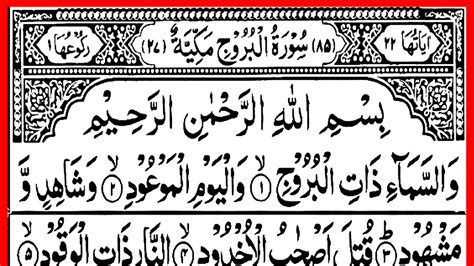 اٰیَاتُهَا ۲۲ (۸۵) سُوْرَةُ الْبُرُوْجِ مَكِّيَّةٌ (۲۷) رُكُوْعُهَا ۱
بِسْمِ اللّٰهِ الرَّحْمٰنِ الرَّحِيْمِ
وَالسَّمَآءِ ذَاتِ الْبُرُوْجِ ۙ۱ وَالْيَوْمِ الْمَوْعُوْدِ ۙ۲ وَشَاهِدٍ وَّ
مَشْهُوْدٍ ؕ۳ قُتِلَ اَصْحٰبُ الْاُخْدُوْدِ ۙ۴ النَّارِ ذَاتِ الْوَقُوْدِ ۙ۵